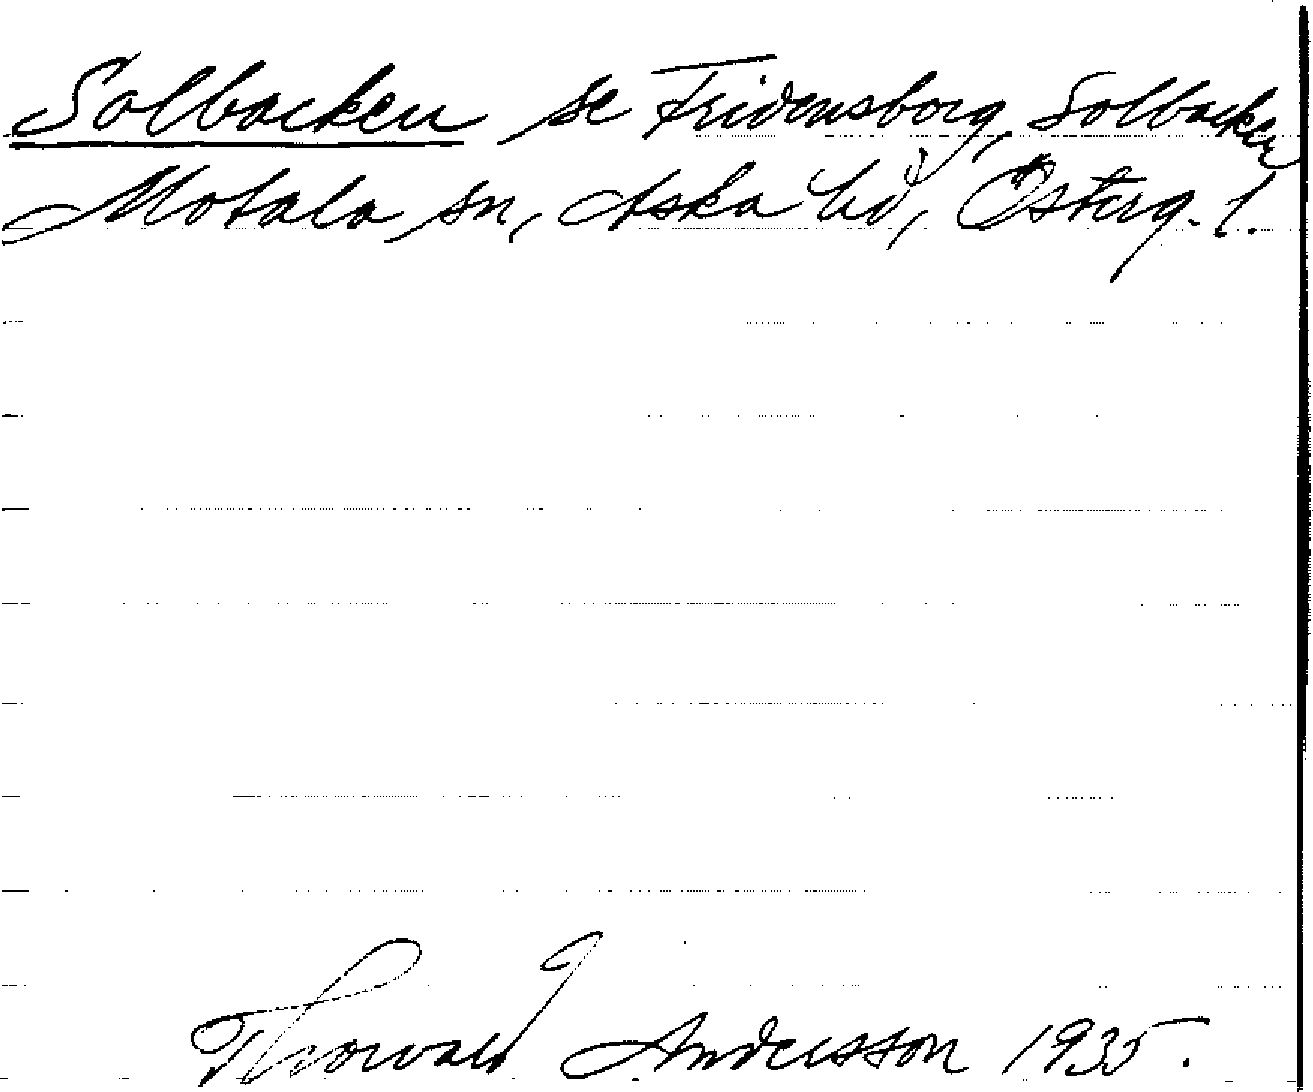 Solbacken se Fridensborg, Solbacken
Motala sn, Aska hd, Österg. l.
Thorvald Andersson 1935.